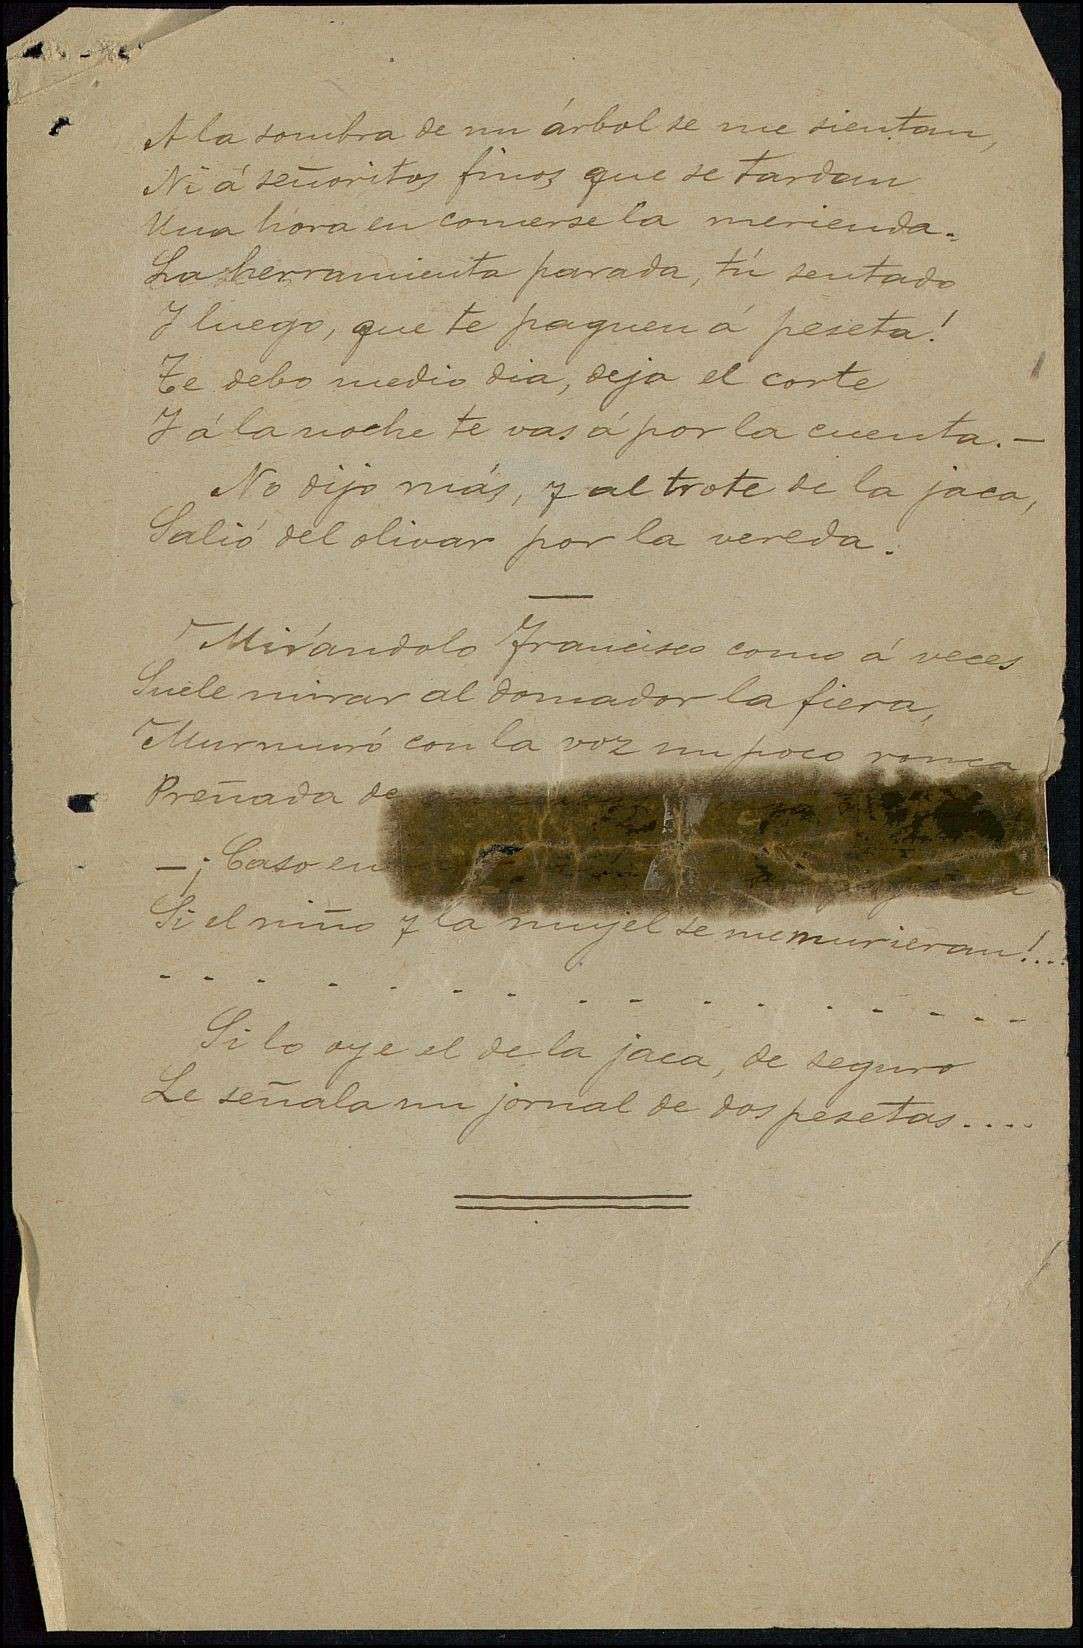 A la sombra de un árbol se me sientan,
Ni á señoritos finos que se tardan
Una hora en comerse la merienda.
La herramienta parada, tú sentado
Y luego, que te paguen á peseta!
Te debo medio dia, deja el corte
Y á la noche te vas á por la cuenta.—
No dijo más, y al trote de la jaca,
Salió del olivar por la vereda.
Mirándolo Francisco como á veces
Suele mirar al domador la fiera,
Murmuró con la voz un poco ronca
Preñada de
—¡Caso en
Si el niño y la mujel se me murieran!...
- - - - - - - - - - - - - - - -
Si lo oye el de la jaca, de seguro
Le señala un jornal de dos pesetas....